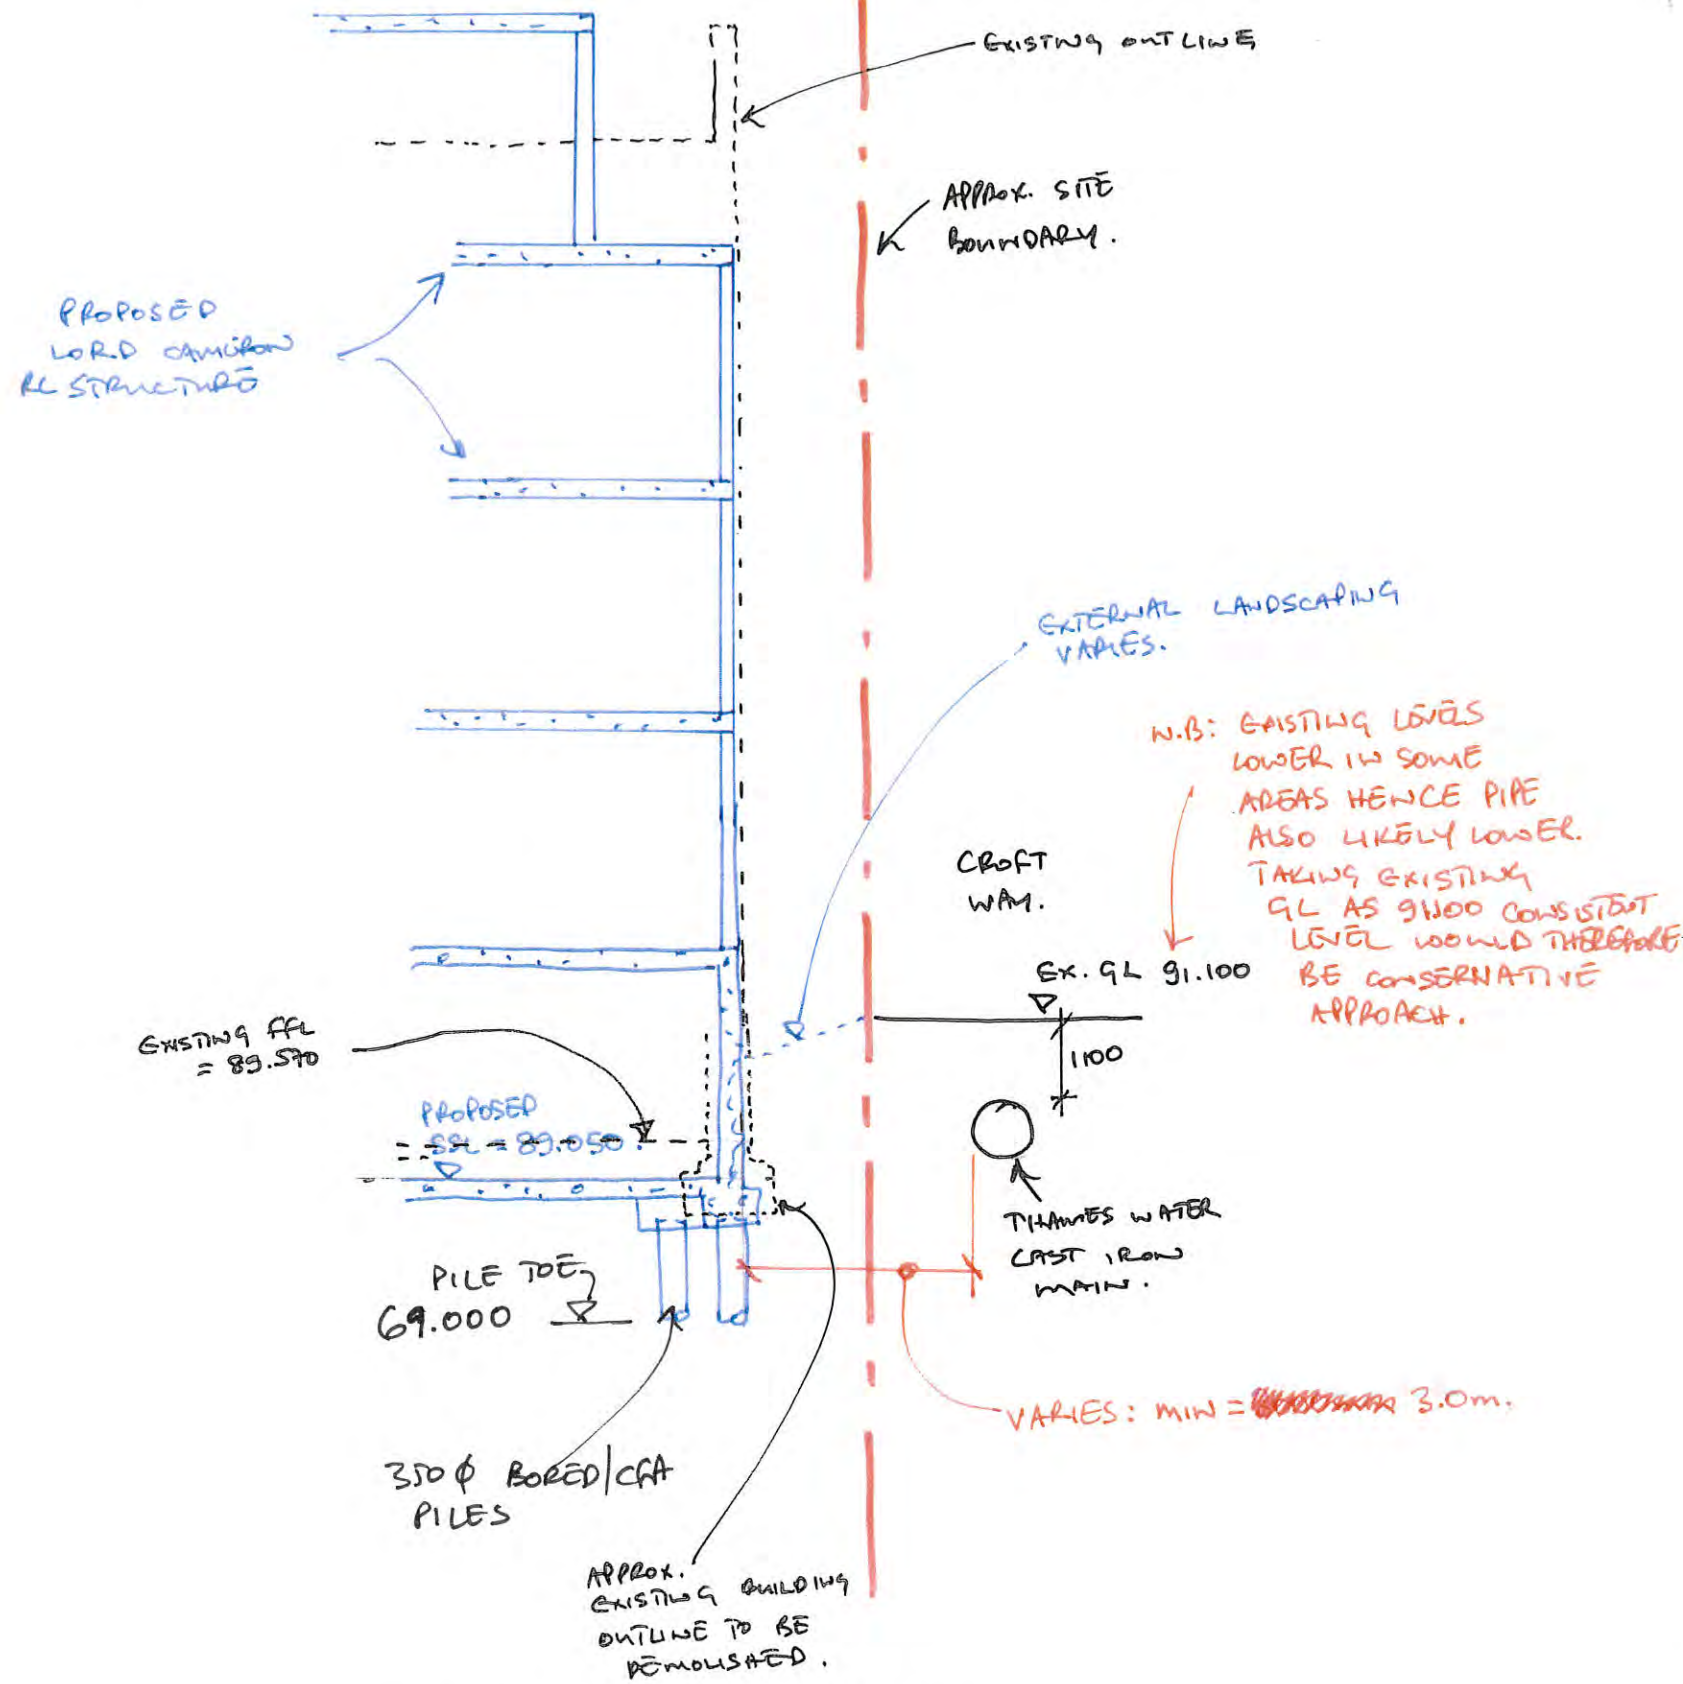 EXISTING OUTLINE
APPROX. SITE
BOUNDARY.
PROPOSED
LORD CAMERON
RC STRUCTURE
EXTERNAL LANDSCAPING
VARIES.
N.B: EXISTING LEVELS
LOWER IN SOME
AREAS HENCE PIPE
ALSO LIKELY LOWER.
TAKING EXISTING
GL AS 91100 CONSISTENT
LEVEL WOULD THEREFORE
BE CONSERNATIVE
APPROACH.
CROFT
WAY.
EX. GL 91.100
1100
EXISTING FFL
= 89.570
PROPOSED
SSL = 89.050.
THAMES WATER
CAST IRON
MAIN.
PILE TOE
69.000
VARIES: MIN = 3.0m.
350 φ BORED/CFA
PILES
APPROX.
EXISTING BUILDING
OUTLINE TO BE
DEMOLISHED.